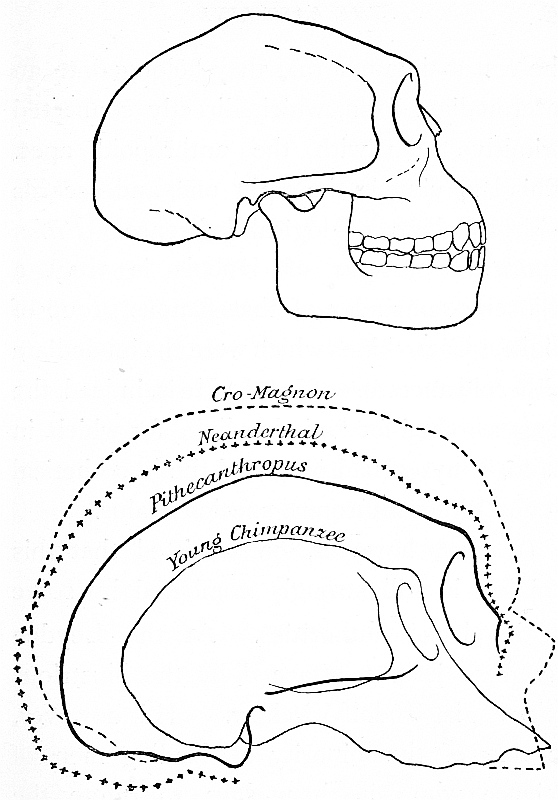 Cro-Magnon
Neanderthal
Pithecanthropus
Young Chimpanzee